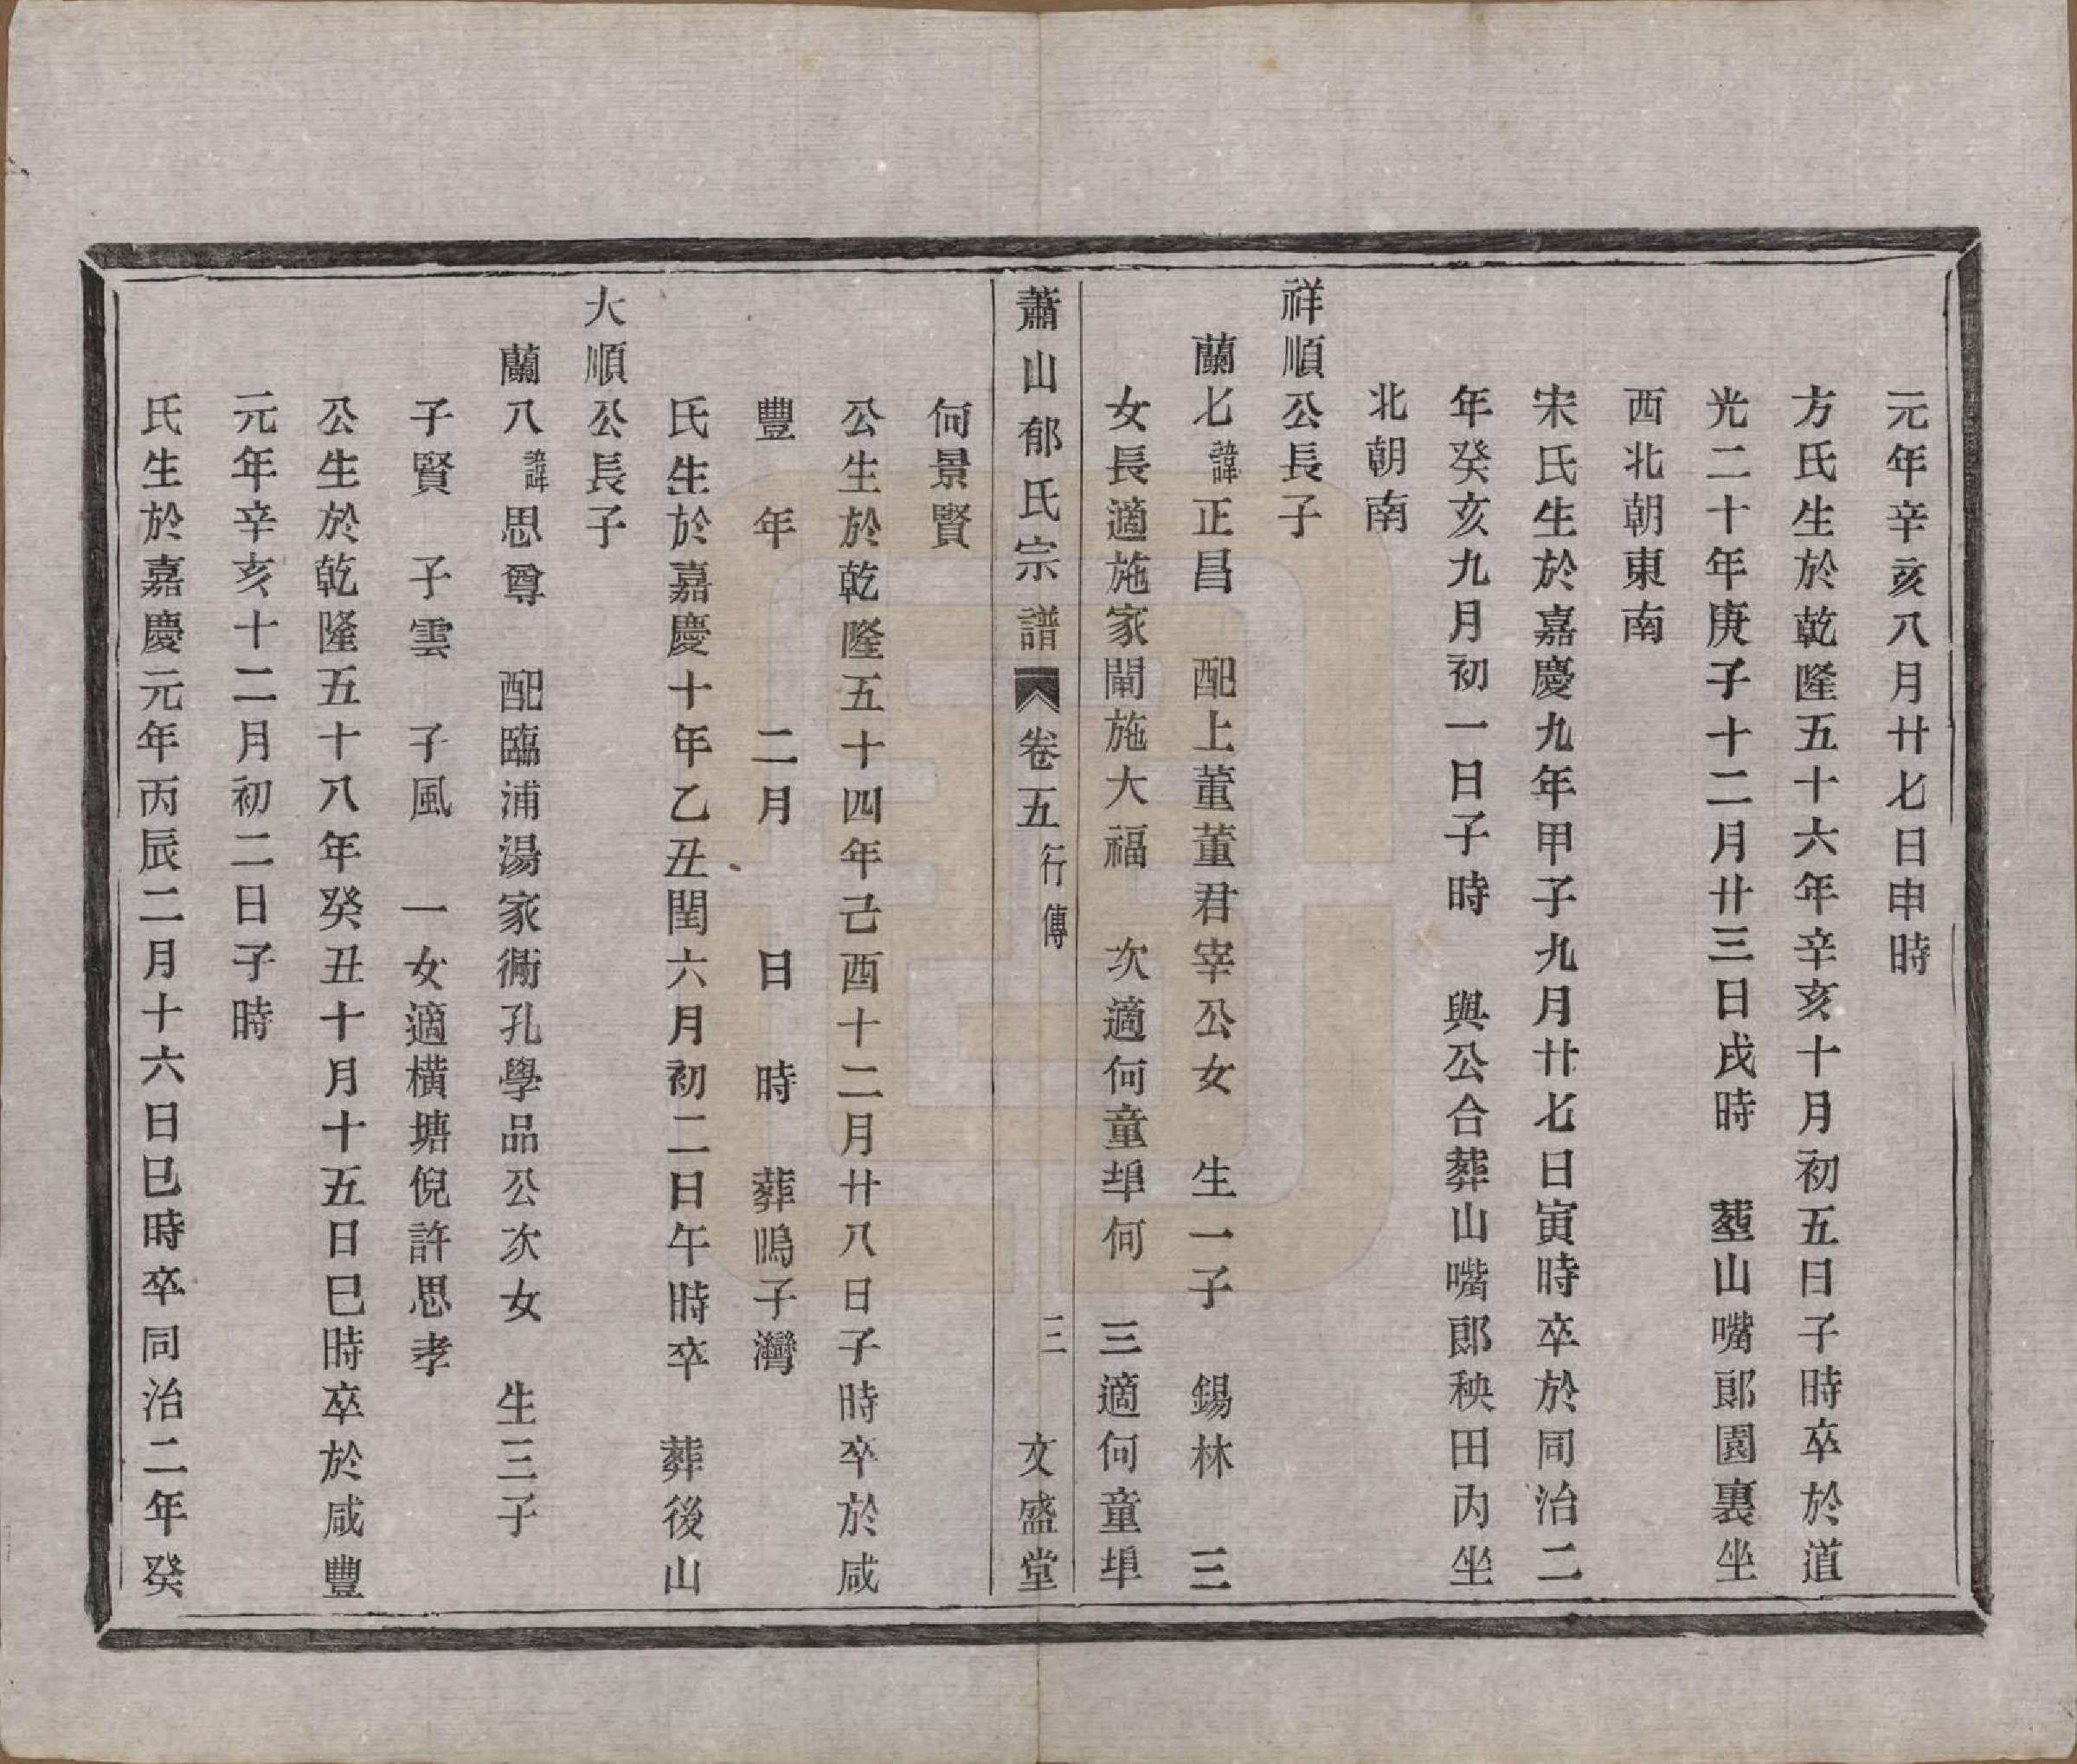 元年辛亥八月廿七日申時
方氏生於乾隆五十六年辛亥十月初五日子時卒於道
光二十年庚子十二月廿三日戌時　塟山嘴郎園裏坐
西北朝東南
宋氏生於嘉慶九年甲子九月廿七日寅時卒於同治二
年癸亥九月初一日子時　與公合葬山嘴郎秧田內坐
北朝南
祥順公長子
蘭七諱正昌　配上董董君宰公女　生一子　錫林　三
女長適施家閘施大福　次適何童埠何　三適何童埠
蕭山郁氏宗譜　卷五　行傳　三　文盛堂
何景賢
公生於乾隆五十四年己酉十二月廿八日子時卒於咸
豐　年　　二月　　日　時　葬鴫子灣
氏生於嘉慶十年乙丑閏六月初二日午時卒　葬後山
大順公長子
蘭八諱思尊　配臨浦湯家衖孔學品公次女　生三子
子賢　子雲　子風　一女適橫塘倪許思孝
公生於乾隆五十八年癸丑十月十五日巳時卒於咸豐
元年辛亥十二月初二日子時
氏生於嘉慶元年丙辰二月十六日巳時卒同治二年癸